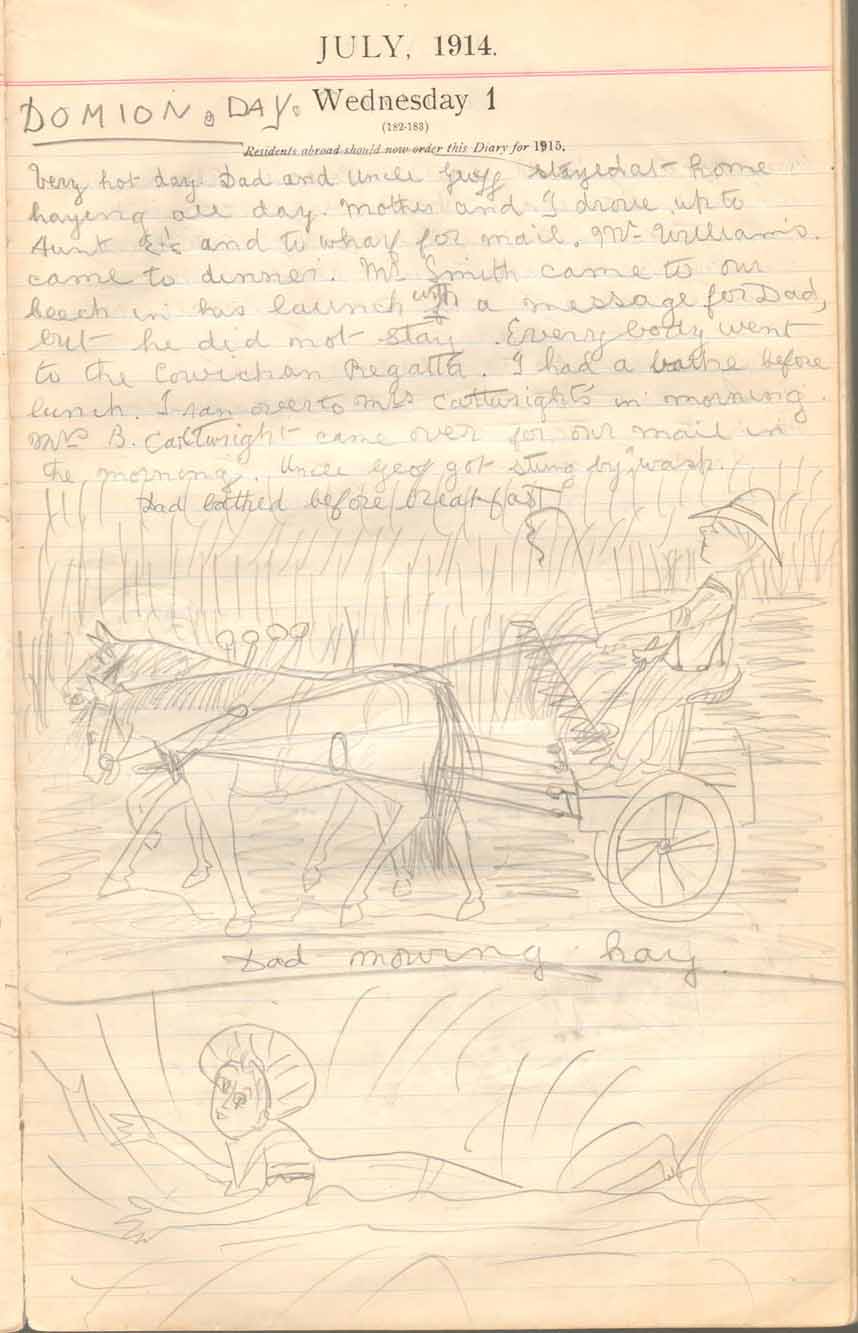 JULY, 1914.
DOMION DAY. Wednesday 1
(182-183)
Residents abroad should now order this Diary for 1915.
Very hot day. Dad and Uncle Geoff stayed at home
haying all day. Mother and I drove up to
Aunt and to whaf for mail. Mr. William's
came to dinner. Mr Smith came to our
beech in his launch with a message for Dad,
but he did not stay. Every body went
to the Cowichan Regatta. I had a bathe before
lunch. I ran over to Mrs Cartwright's in morning.
Mrs B. Cartwright came over for our mail in
the morning. Uncle Geof got stung by wasp.
Dad bathed before breakfast
Dad mowing hay.